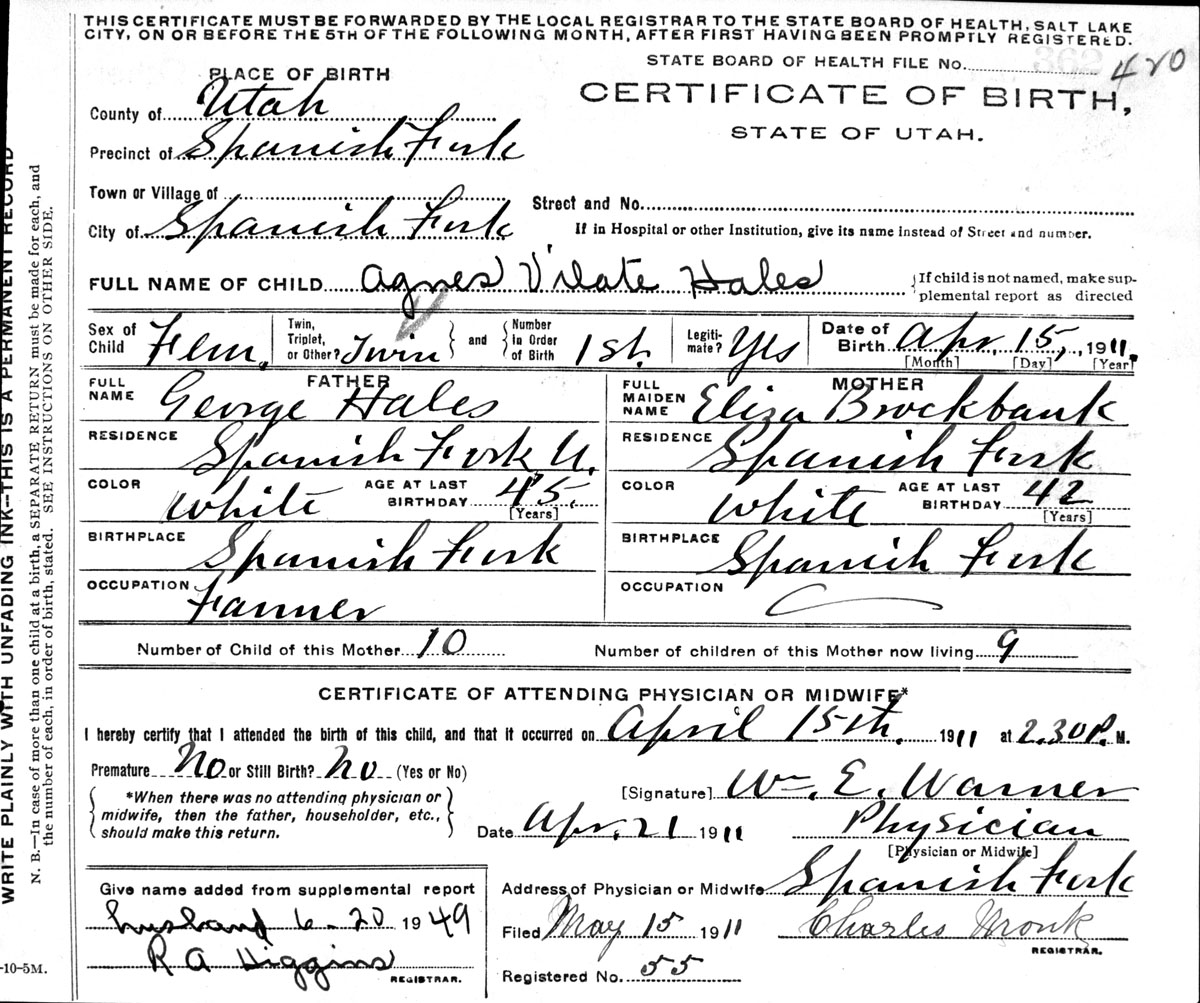 THIS CERTIFICATE MUST BE FORWARDED BY THE LOCAL REGISTRAR TO THE STATE BOARD OF HEALTH, SALT LAKE
CITY, ON OR BEFORE THE 5TH OF THE FOLLOWING MONTH, AFTER FIRST HAVING BEEN PROMPTLY REGISTERED.
STATE BOARD OF HEALTH FILE No. 362 420
PLACE OF BIRTH
CERTIFICATE OF BIRTH,
STATE OF UTAH.
County of Utah
Precinct of Spanish Fork
Town or Village of
Street and No.
City of Spanish Fork
If in Hospital or other Institution, give its name instead of Street and number.
FULL NAME OF CHILD Agnes Vilate Hales
If child is not named, make sup-
plemental report as directed
Sex of Child Fem. Twin, Triplet, or Other? Twin and Number in Order of Birth 1st. Legiti-mate? Yes Date of Birth Apr. 15, 1911.
[Month] [Day] [Year]
FATHER
FULL NAME George Hales
RESIDENCE Spanish Fork U.
COLOR White AGE AT LAST BIRTHDAY 45.
[Years]
BIRTHPLACE Spanish Fork
OCCUPATION Farmer
MOTHER
FULL MAIDEN NAME Eliza Brockbank
RESIDENCE Spanish Fork
COLOR White AGE AT LAST BIRTHDAY 42
[Years]
BIRTHPLACE Spanish Fork
OCCUPATION
Number of Child of this Mother 10 Number of children of this Mother now living 9
CERTIFICATE OF ATTENDING PHYSICIAN OR MIDWIFE*
I hereby certify that I attended the birth of this child, and that it occurred on April 15th. 1911 at 2.30 P. M.
Premature No or Still Birth? No (Yes or No)
*When there was no attending physician or
midwife, then the father, householder, etc.,
should make this return.
[Signature] Wm. E. Warner
Date Apr. 21 1911 Physician
[Physician or Midwife]
Give name added from supplemental report
husband 6-20 1949
R A Higgins
REGISTRAR.
Address of Physician or Midwife Spanish Fork
Filed May 15 1911 Charles Monk
REGISTRAR.
Registered No. 55
WRITE PLAINLY WITH UNFADING INK--THIS IS A PERMANENT RECORD
N. B.--In case of more than one child at a birth, a SEPARATE RETURN must be made for each, and
the number of each, in order of birth, stated. SEE INSTRUCTIONS ON OTHER SIDE.
-10-5M.